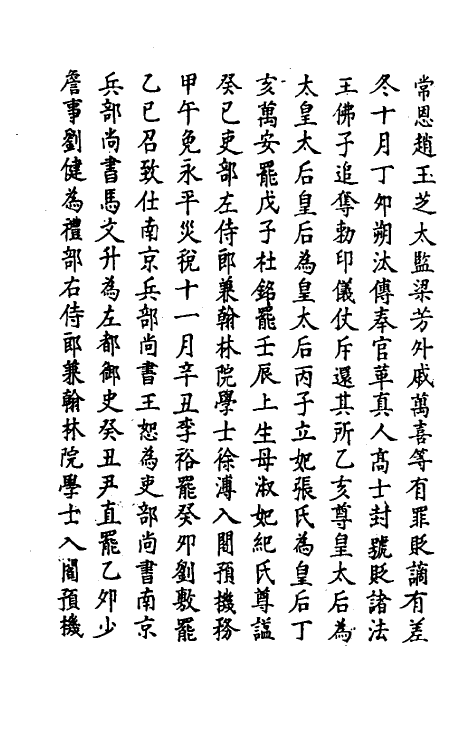 常恩趙王芝太監梁芳外戚萬喜等有罪貶謫有差
冬十月丁卯朔汰傳奉官革真人高士封號貶諸法
王佛子追奪勑印儀仗斥還其所乙亥尊皇太后為
太皇太后皇后為皇太后丙子立妃張氏為皇后丁
亥萬安罷戊子杜銘罷壬辰上生母淑妃紀氏尊謚
癸巳吏部左侍郎兼翰林院學士徐溥入閣預機務
甲午免永平災稅十一月辛丑李裕罷癸卯劉敷罷
乙巳召致仕南京兵部尚書王恕為吏部尚書南京
兵部尚書馬文升為左都御史癸丑尹直罷乙卯少
詹事劉健為禮部右侍郎兼翰林院學士入閣預機